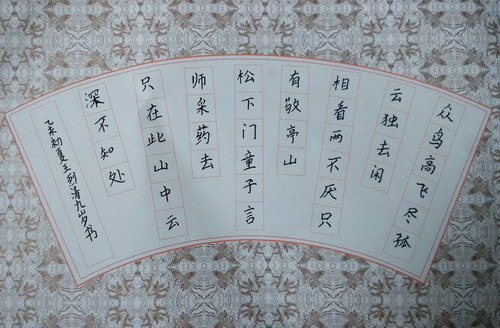 众鸟高飞尽孤
云独去闲
相看两不厌只
有敬亭山
松下门童子言
师采药去
只在此山中云
深不知处
乙未初夏王列清九岁书